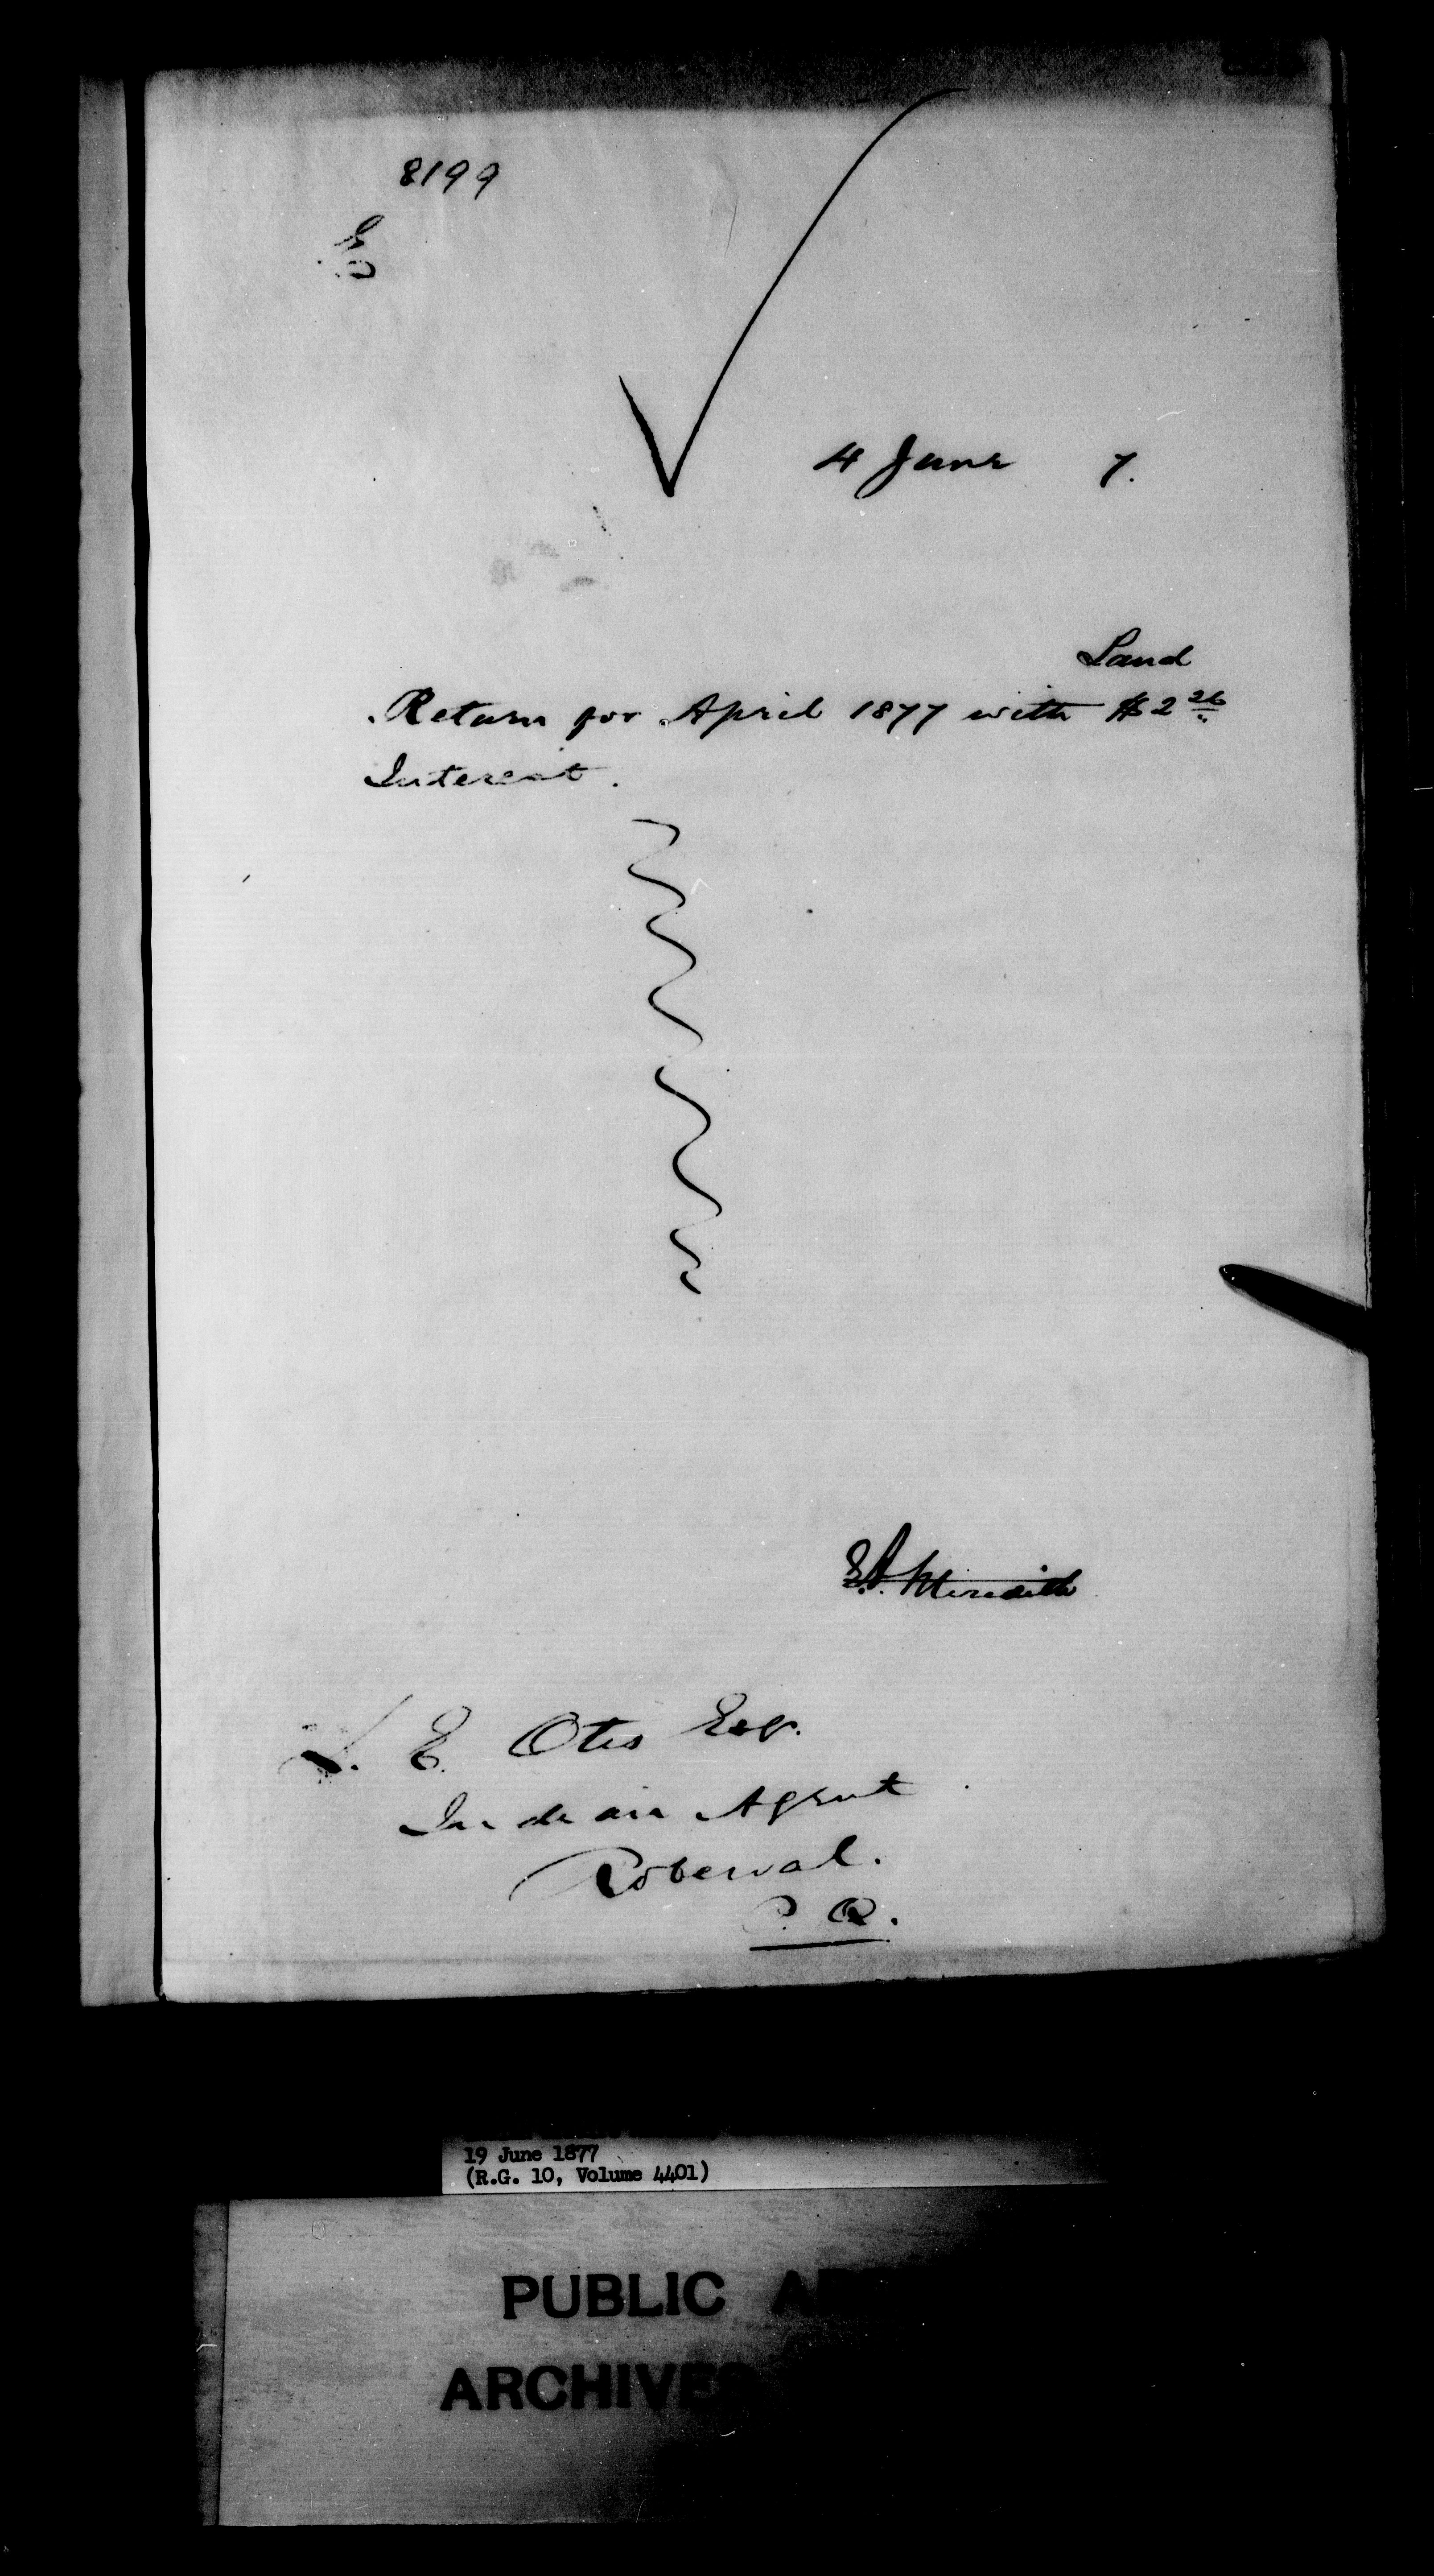 8199
4 June 7.
Land
Return for April 1877 with $2 26
Interest.
E.A. Meredith
L. E. Otis Esqr.
Indian Agent
Roberval.
P. Q.
19 June 1877
(R.G. 10, Volume 4401)
PUBLIC
ARCHIVES